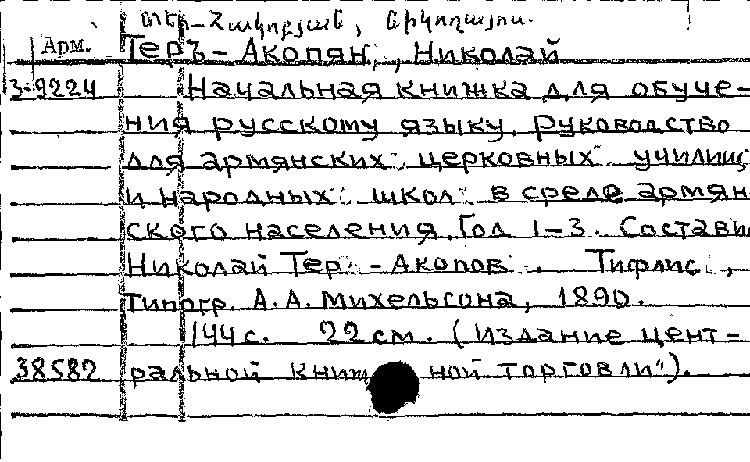 Տէր-Յակոբեան, Նիկողայոս.
Арм. Теръ-Акопян, Николай
3-9224 Начальная книжка для обуче-
ния русскому языку. Руководство
для армянских церковных училищ
и народных школ в среде армян
ского населения. Год 1-3. Состави
Николай Тер-Акопов. Тифлис,
типогр. А.А. Михельсона, 1890.
144 с. 22 см. (Издание цент-
38582 ральной книж ной торговли").